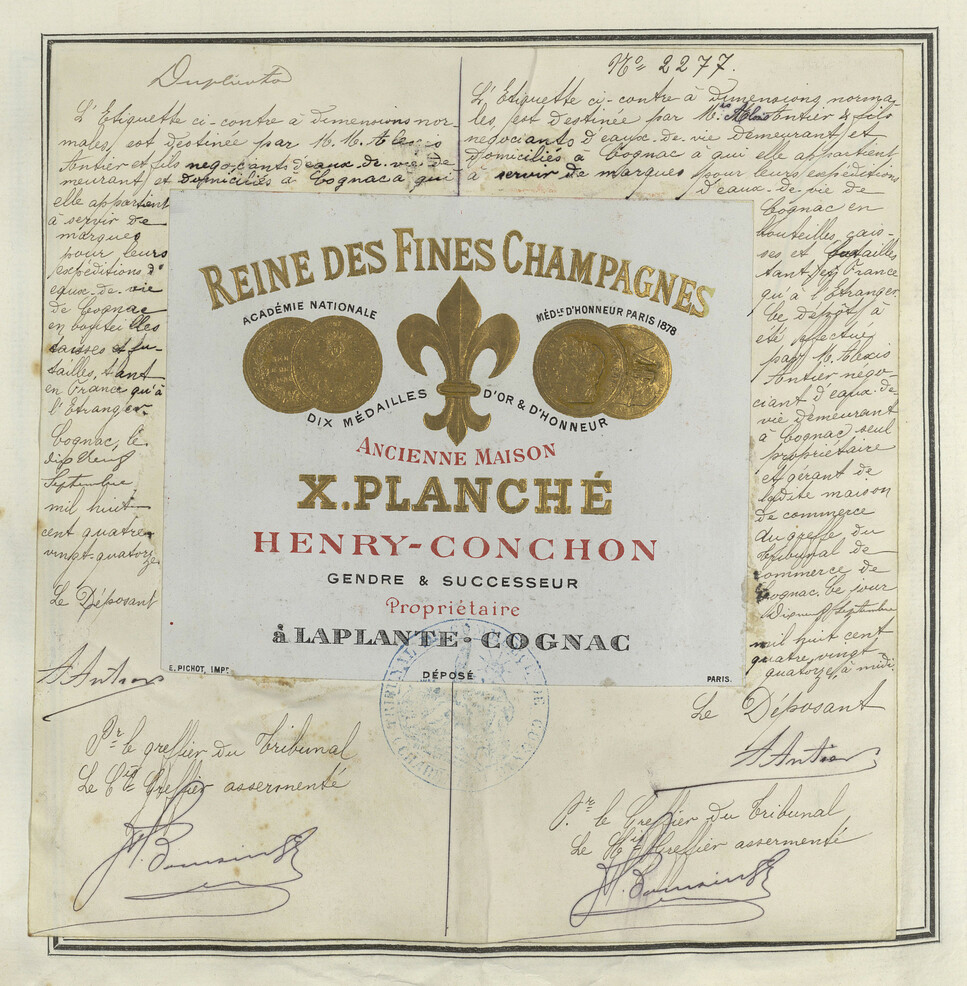 Duplicata
L'Etiquette ci-contre à dimensions nor-
males, est destinée par M. M. Alexis
Antier et fils negociants d'eaux-de-vie de
meurant et domiciliés à Cognac a qui
elle appartient
à servir de
marques
pour leurs
expéditions d'
eaux-de-vie
de Cognac
en bouteilles
caisses et fu-
tailles, tant
en France qu'à
l'Etranger.
Cognac, le
dix neuf
Septembre
mil huit
cent quatre
vingt-quatorze
Le Déposant
A Antier
Pr le greffier du Tribunal
Le Cis Greffier assermenté
No 2277.
L'Etiquette ci-contre à dimensions norma-
les, est destinée par M.rs Antier & fils
negociants d'eaux-de-vie demeurant et
domiciliés à Cognac à qui elle appartient
à servir de marques pour leurs expéditions
d'eaux-de-vie de
Cognac en
bouteilles, cais-
ses et futailles
tant en France
qu'à l'Etranger.
Ce dépôt à
été effectué
par M. Alexis
Antier négo-
ciant d'eaux-de-
vie demeurant
à Cognac, seul
propriétaire
et gérant de
ladite maison
de commerce
au greffe du
Tribunal de
commerce de
Cognac. Ce jour
Dix neuf Septembre
mil huit cent
quatre vingt
quatorze, à midi.
Le Déposant
A Antier
Pr le Greffier du Tribunal
Le Cis Greffier assermenté
REINE DES FINES CHAMPAGNES
ACADÉMIE NATIONALE
MÉDle D'HONNEUR PARIS 1878
DIX MÉDAILLES D'OR & D'HONNEUR
ANCIENNE MAISON
X.PLANCHÉ
HENRY-CONCHON
GENDRE & SUCCESSEUR
Propriétaire
à LAPLANTE-COGNAC
DÉPOSÉ
E. PICHOT, IMPR
PARIS.